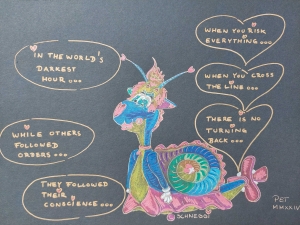 IN THE WORLD'S
DARKEST
HOUR...
WHILE OTHERS
FOLLOWED
ORDERS...
THEY FOLLOWED
THEIR
CONSCIENCE...
WHEN YOU RISK
EVERYTHING...
WHEN YOU CROSS
THE LINE...
THERE IS NO
TURNING
BACK...
SCHNEGGI
PET
MMXXIV